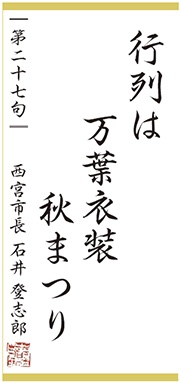 行列は
万葉衣装
秋まつり
第二十七句
西宮市長 石井 登志郎